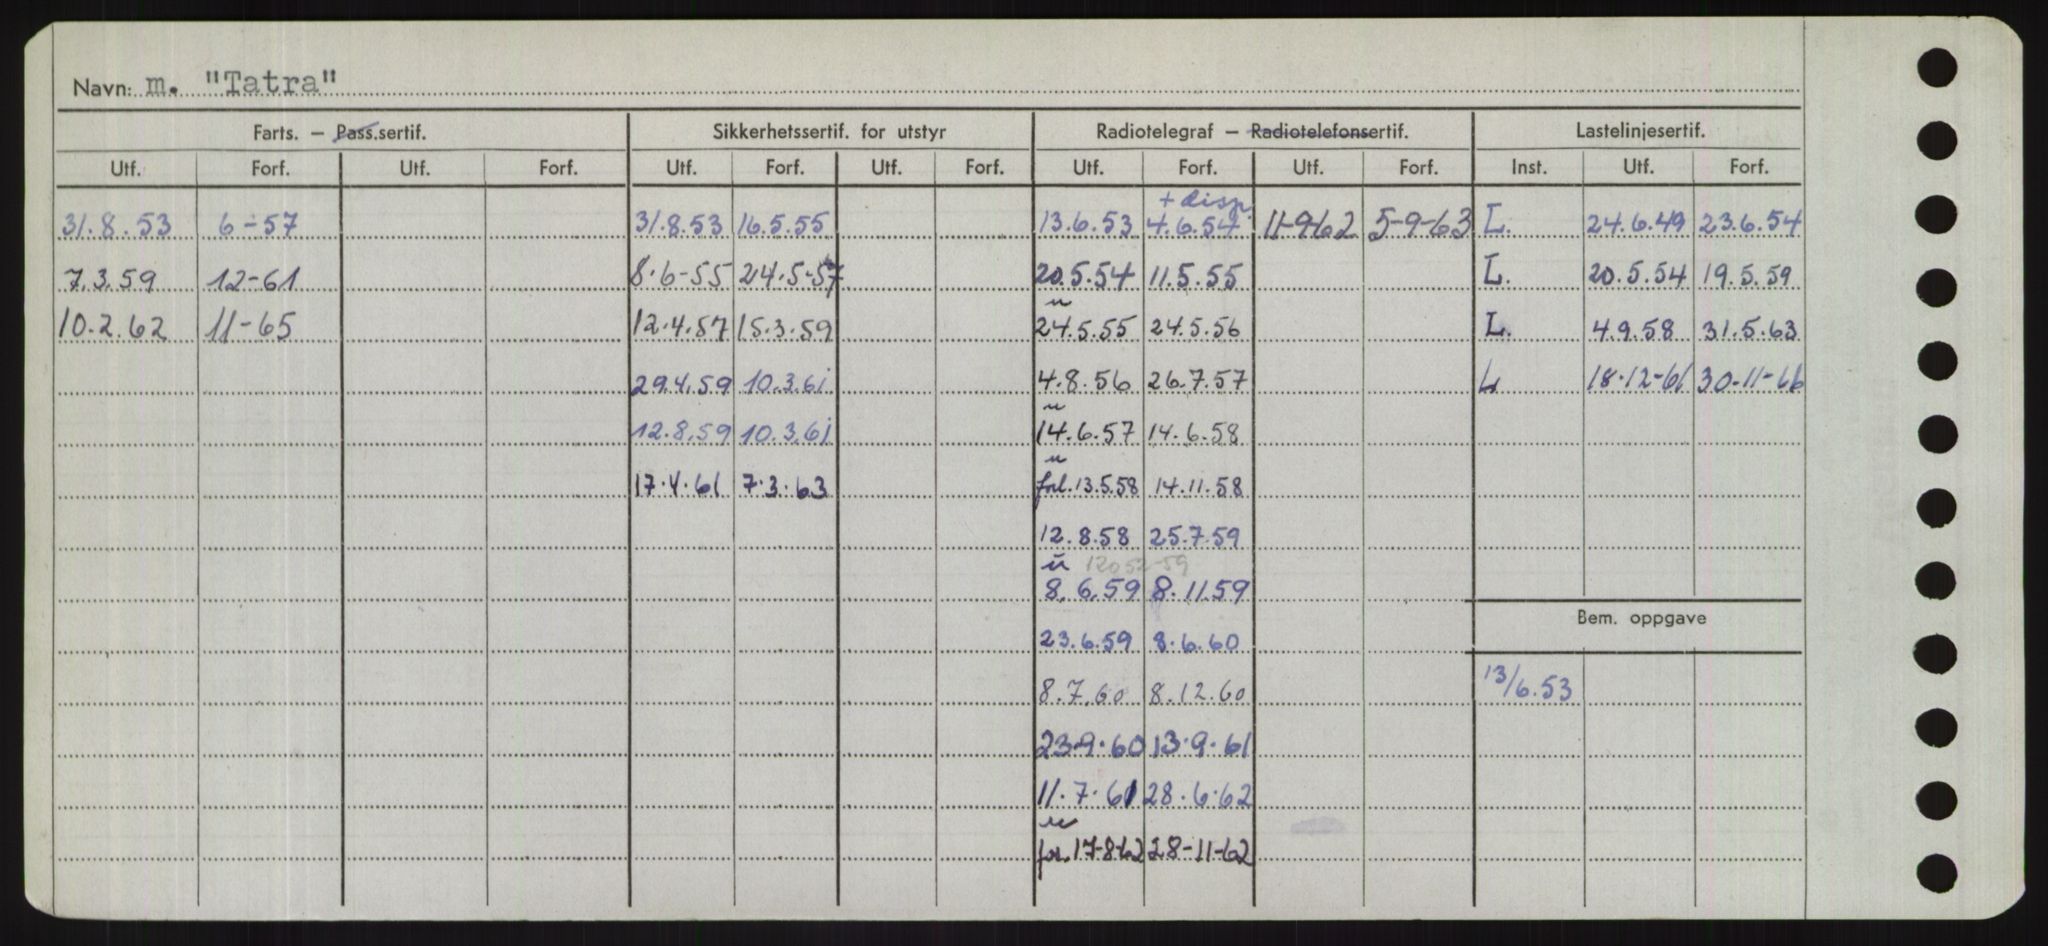 Navn: m. "Tatra"
Farts. – Pass.sertif. Sikkerhetssertif. for utstyr Radiotelegraf – Radiotelefonsertif. Lastelinjesertif.
Utf. Forf. Utf. Forf. Utf. Forf. Utf. Forf. Utf. Forf. Utf. Forf. Inst. Utf. Forf.
+ disp.
31.8.53 6-57 31.8.53 16.5.55 13.6.53 4.6.54 11-9-62 5-9-63 L. 24.6.49 23.6.54
7.3.59 12-61 8.6-55 24.5-57 20.5.54 11.5.55 L. 20.5.54 19.5.59
u
10.2.62 11-65 12.4.57 15.3.59 24.5.55 24.5.56 L. 4.9.58 31.5.63
29.4.59 10.3.61 4.8.56 26.7.57 L 18.12-61 30-11-66
u
12.8.59 10.3.61 14.6.57 14.6.58
u
17.4.61 7.3.63 forl. 13.5.58 14.11.58
12.8.58 25.7.59
u
8.6.59 8.11.59
Bem. oppgave
23.6.59 8.6.60
13/6.53
8.7.60 8.12.60
23-9.60 13.9.61
11.7.61 28.6.62
u
for. 17-8-62 28-11-62